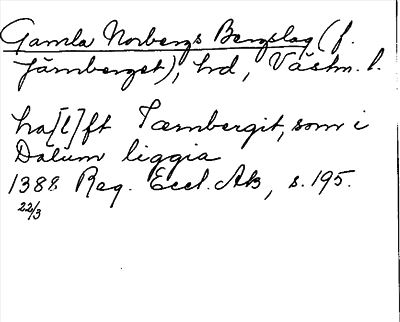 Gamla Norbergs Bergslag (f.
Järnberget), hd, Västm. l.
ha[l]ft Iærnbergit, som i
Dalum liggia
1388 Reg. Eccl. Ab, s. 195.
22/3